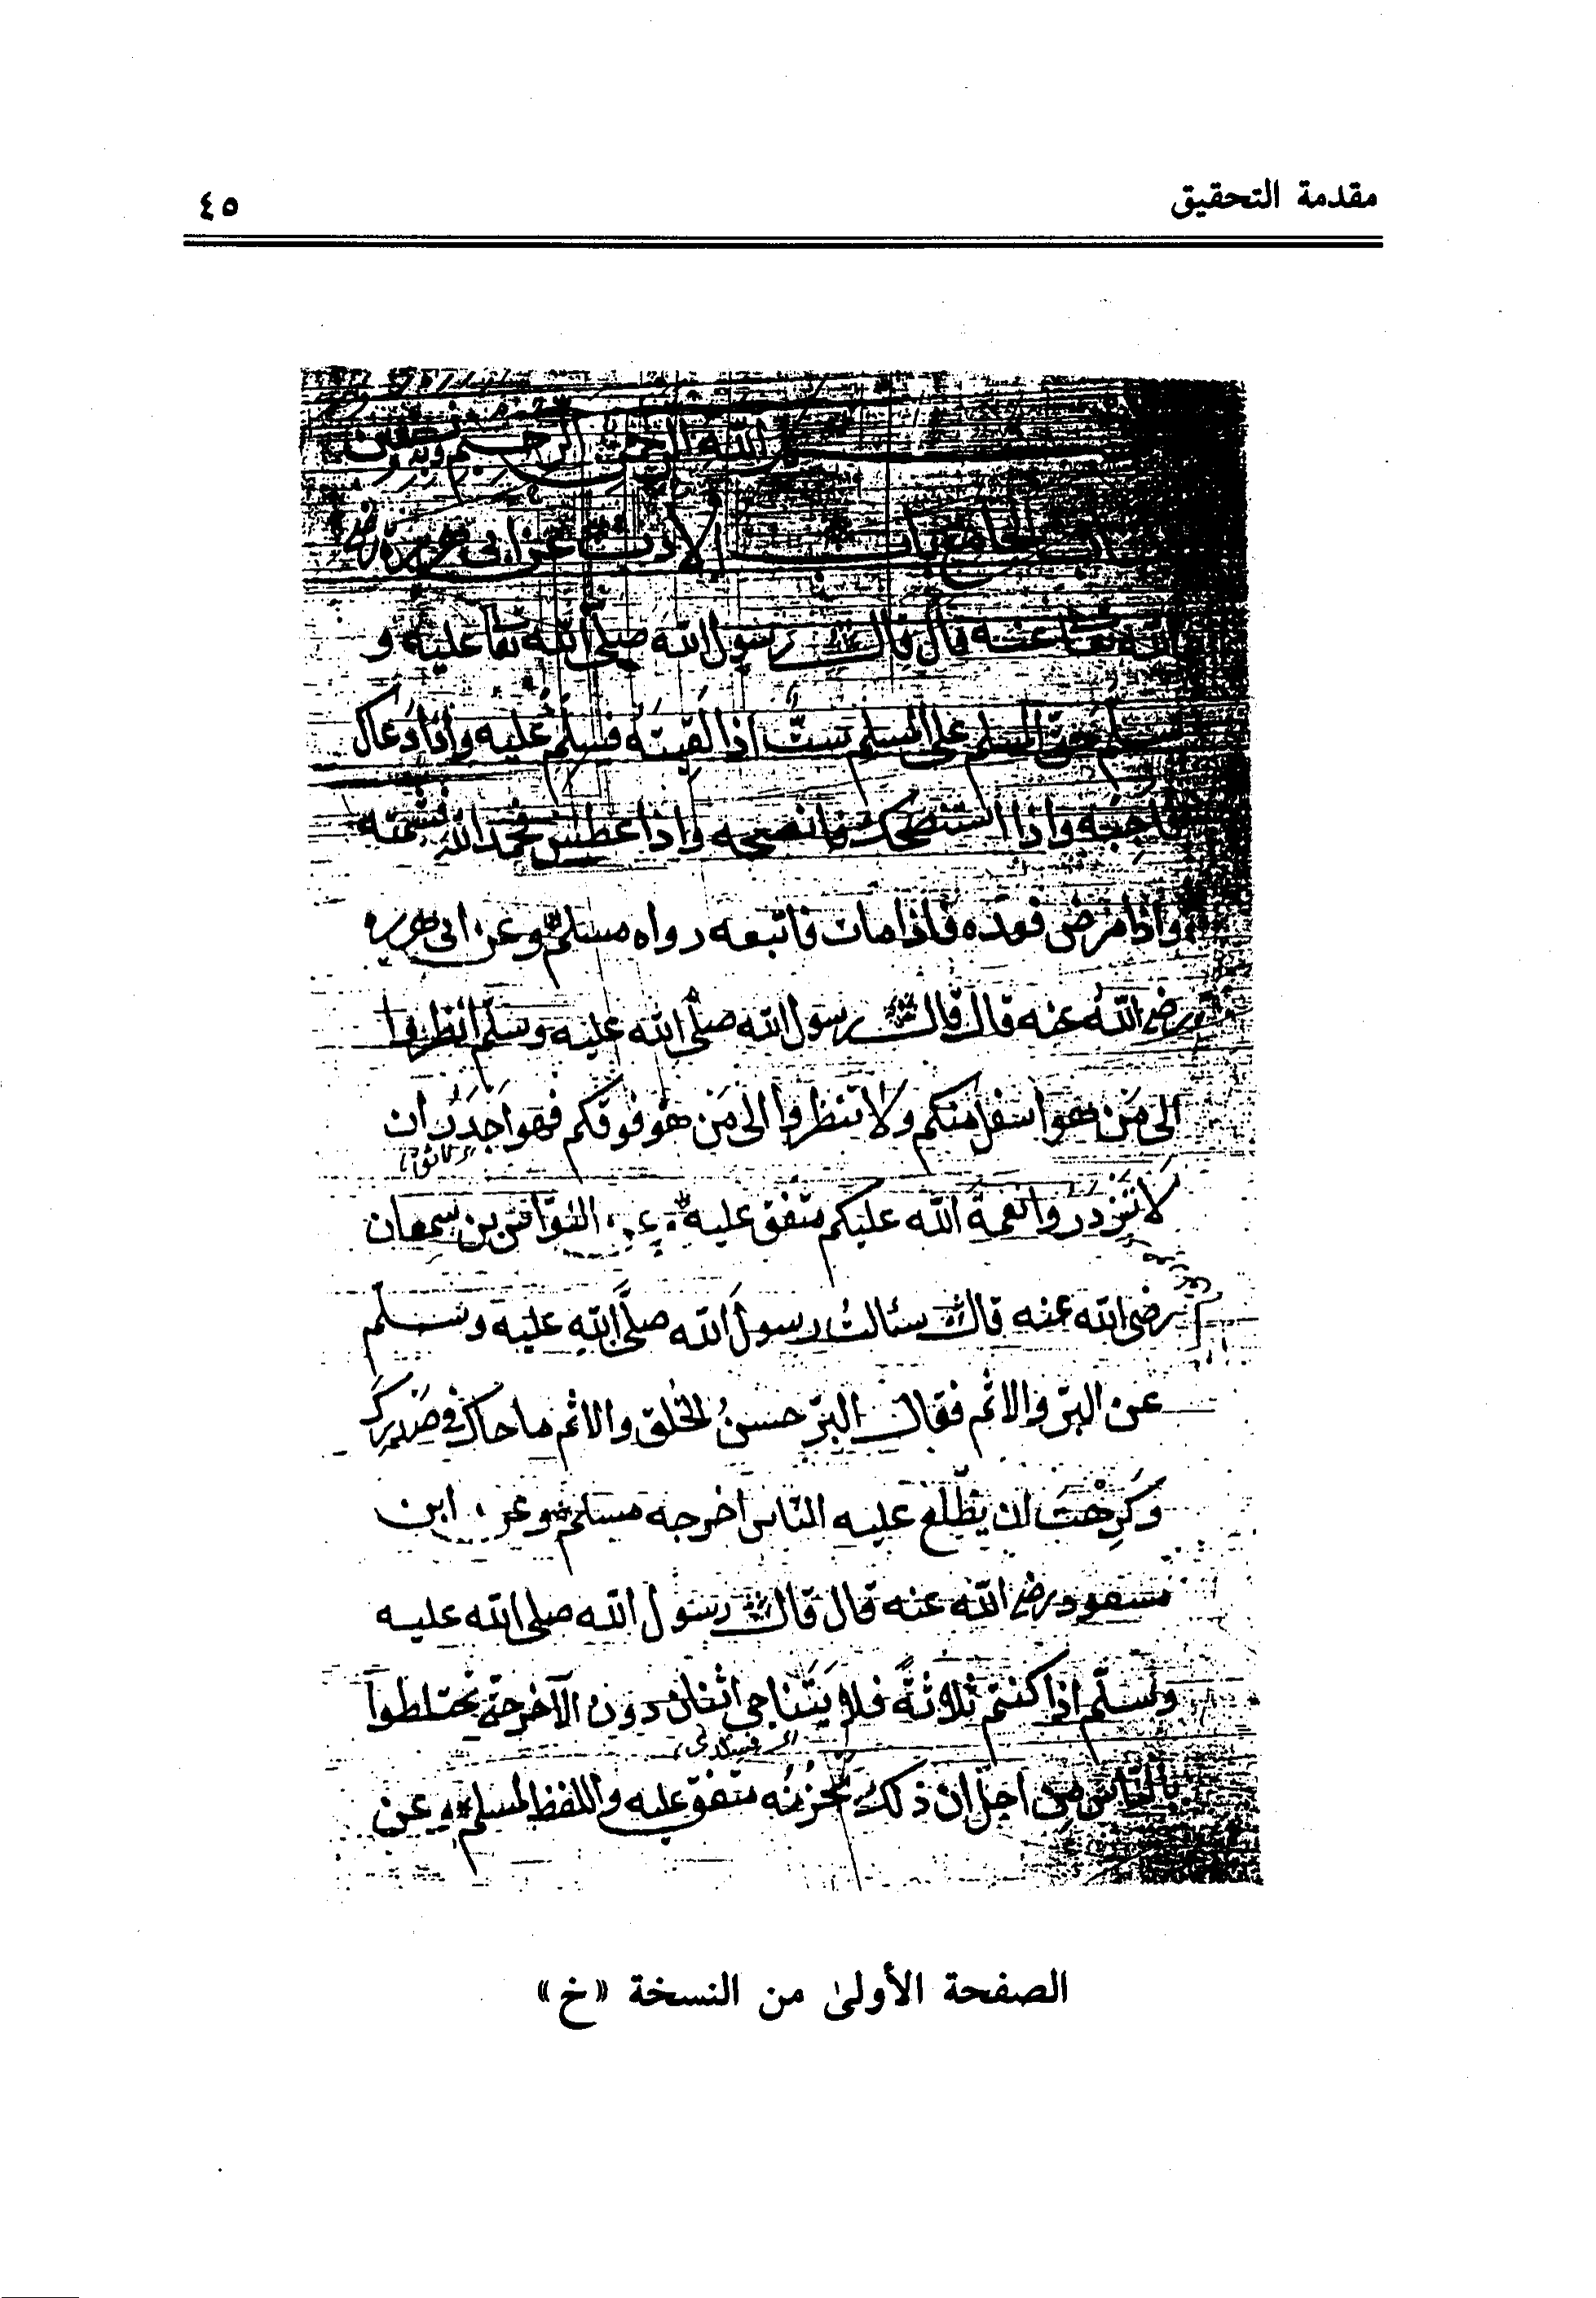 مقدمة التحقيق
٤٥
الله الرحمن الرحيم وبه نستعين
الجامع باب الادب عن ابى هريره رضى
الله تعا عنه قال قال رسول الله صلى الله تعا عليه و
سلم حق المسلم على المسلم ستّ اذا لقيته فسلم عليه واذا دعاك
فاجبه واذا استنصحك فانصحه واذا عطس فحمد الله فشمته
واذا مرض فعده فاذا مات فاتبعه رواه مسلم وعن ابى هريره
رضى الله عنه قال قال رسول الله صلى الله عليه وسلم انظروا
الى من هو اسفل منكم ولا تنظروا الى من هو فوقكم فهو اجدر ان
لا تزدروا نعمة الله عليكم متفق عليه وعن النوّاس بن سمعان
رضى الله عنه قال سئالت رسول الله صلى الله عليه وسلم
عن البرّ والاثم فقال البرّ حسن الخلق والاثم ما حاك فى صدرك
وكرهت ان يطّلع عليه الناس اخرجه مسلم وعن ابن
مسعود رضى الله عنه قال قال رسول الله صلى الله عليه
وسلّم اذا كنتم ثلاثة فلا يتناجى اثنان دون الآخر حتى تختلطوا
بالناس من اجل ان ذلك يحزنه متفق عليه واللفظ لمسلم وعن
الصفحة الأولىٰ من النسخة «خ»